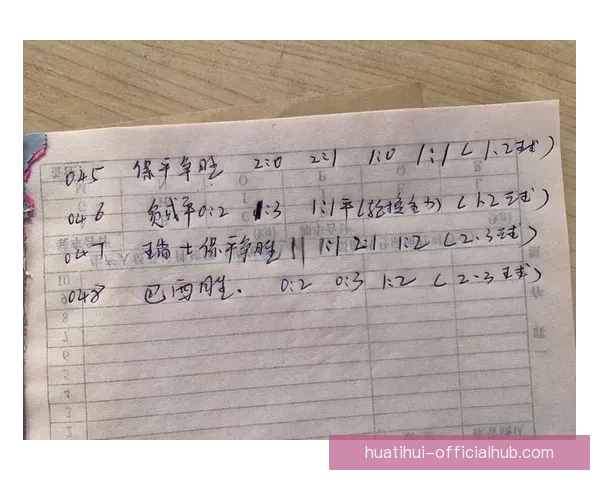 045 保平争胜 2:0 2:1 1:0 1:1 ( 1.2球)
046 负或平 0:2 1:3 1:1平 ( 1.2球)
047 瑞士保平争胜 || 1:1 2:1 1:2 ( 2-3球)
048 巴西胜. 0:2 0:3 1:2 ( 2-3球)
huatihui-officialhub.com